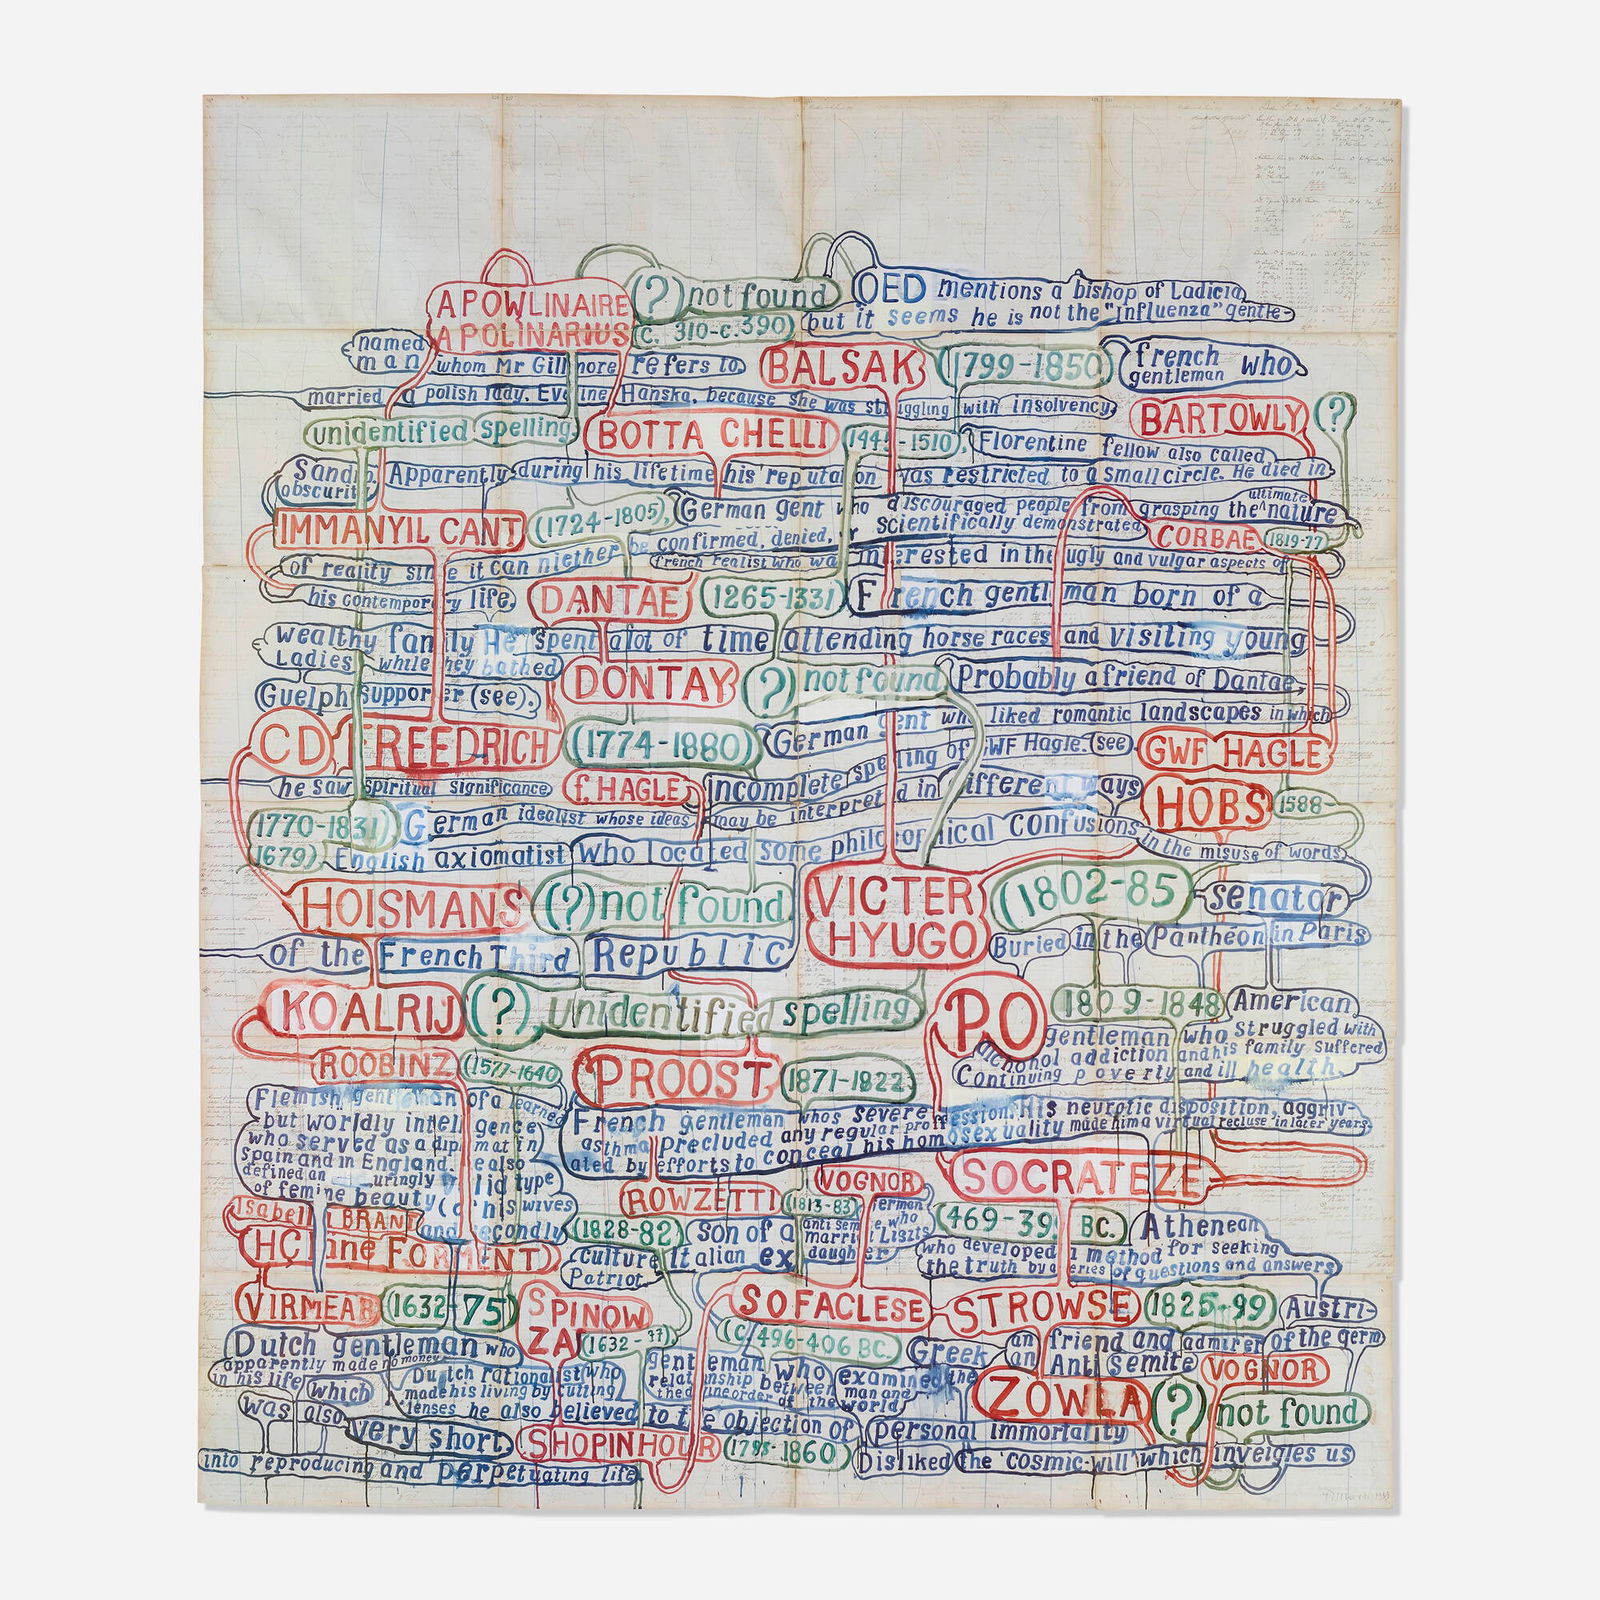 APOWLINAIRE (?) not found OED mentions a bishop of Ladicia
APOLINARIUS c. 310-c.390) but it seems he is not the "influenza" gentle-
named
man whom Mr Gillmore refers to BALSAK (1799-1850) french gentleman who
married a polish lady. Eveline Hanska, because she was struggling with insolvency BARTOWLY (?)
unidentified spelling BOTTA CHELLI (1445-1510), Florentine fellow also called
Sandro. Apparently during his lifetime his reputation was restricted to a small circle. He died in
obscurity
IMMANYIL CANT (1724-1805), German gent who discouraged people from grasping the ultimate nature
of reality since it can niether be confirmed, denied, or scientifically demonstrated CORBAE 1819-77
french realist who was interested in the ugly and vulgar aspects of
his contemporary life, DANTAE (1265-1331) French gentleman born of a
wealthy family He spent a lot of time attending horse races and visiting young
Ladies while they bathed DONTAY (?) not found Probably a friend of Dantae
Guelph supporter (see).
CD FREEDRICH (1774-1880) German gent who liked romantic landscapes in which
he saw spiritual significance f. HAGLE Incomplete spelling of GWF Hagle. (see) GWF HAGLE
(1770-1831) German idealist whose ideas may be interpreted in different ways HOBS 1588-
1679), English axiomatist who located some philosophical confusions in the misuse of words
HOISMANS (?) not found VICTER HYUGO (1802-85 senator
of the French Third Republic Buried in the Pantheon in Paris
KOALRIJ (?) unidentified spelling PO 1809-1848 American
gentleman who struggled with
alchohol addiction and his family suffered
Continuing poverty and ill health.
ROOBINZ (1577-1640 PROOST 1871-1822
Flemish gentleman of a learned
but worldly intelligence
who served as a diplomat in
Spain and in England. He also
defined an uringly solid type
of femine beauty (c his wives
Isabell BRANT and secondly
HC line FORMENT)
French gentleman whos severe
asthma precluded any regular profession. His neurotic disposition, aggriv-
ated by efforts to conceal his homosexuality made him a virtual recluse in later years.
ROWZETTI (1828-82) son of a culture Italian ex Patriot
VOGNOR (1813-83) German anti semite, who married Liszts daughter)
SOCRATEZE (469-39 BC. Athenean
who developed a method for seeking
the truth by a series of questions and answers
VIRMEAR (1632-75) SPINOWZA (1632-77) SOFACLESE STROWSE (1825-99 Austri-
Dutch gentleman who apparently made no money in his life which
was also very short
Dutch rationalist who made his living by cutting lenses he also believed to the objection of
(c. 496-406 BC. Greek gentleman who examined the relationship between man and the divine order of the world
an friend and admirer of the germ
an Anti semite VOGNOR
ZOWLA (?) not found
SHOPINHOUR (1788-1860) Disliked the 'cosmic-will' which inveigles us
personal immortality
into reproducing and perpetuating life.